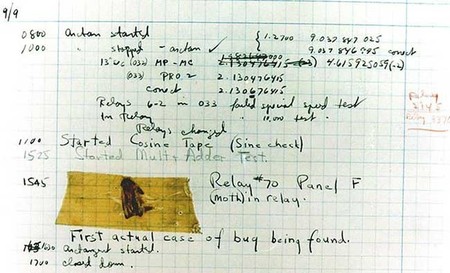 9/9
0800 Antan started
1000 " stopped - antan ✓ { 1.2700 9.037 847 025
9.037 846 995 correct
13"UC (032) MP - MC 2.130476415 (-3) 4.615925059(-2)
(033) PRO 2 2.130476415
correct 2.130676415
Relays 6-2 in 033 failed special speed test
In relay " 10,000 test.
Relays changed
Relay
2145
Relay 3370
1100 Started Cosine Tape (Sine check)
1525 Started Mult + Adder Test.
1545 Relay #70 Panel F
(Moth) in relay.
First actual case of bug being found.
1630 antangent started.
1700 closed down.